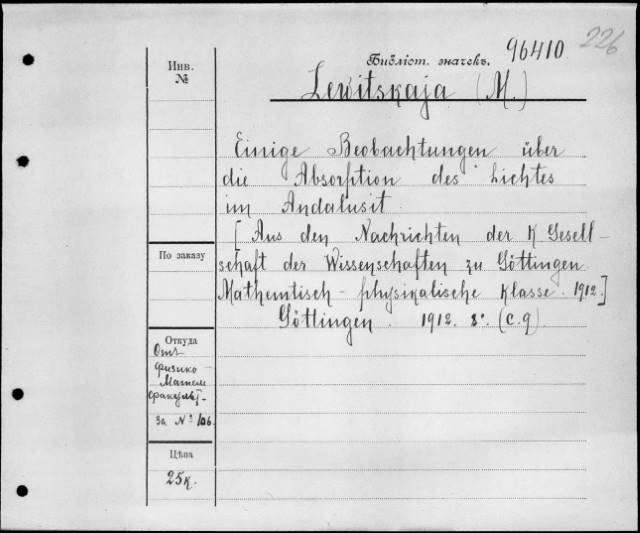 226
Библіот. значекъ. 96410
Инв.
№
Lewitskaja (M.)
Einige Beobachtungen über
die Absorption des Lichtes
im Andalusit.
[Aus den Nachrichten der K. Gesell-
schaft der Wissenschaften zu Göttingen.
Mathemtisch-physikalische Klasse. 1912.]
Göttingen. 1912. 8°. (c. 9).
По заказу
Откуда
Отъ
физико-
Матем
факульт.
За № 106.
Цѣна
25к.